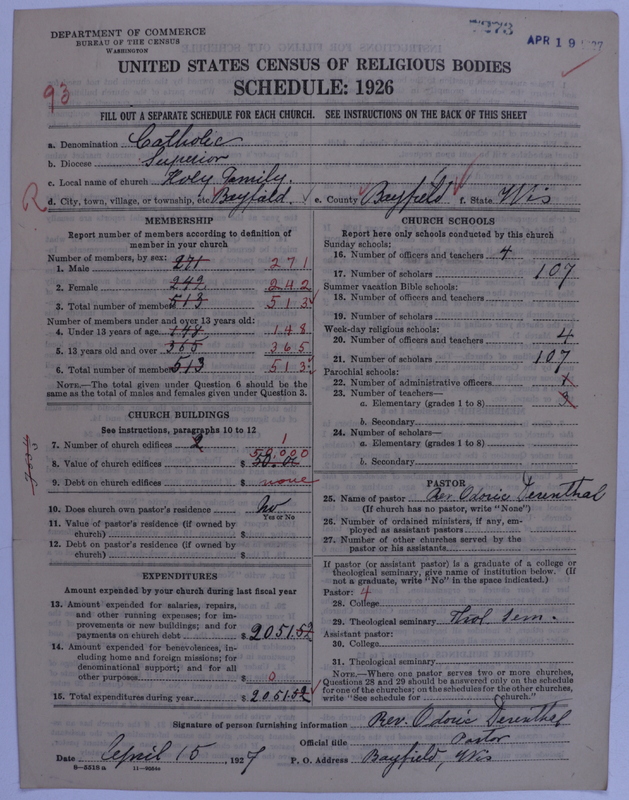 DEPARTMENT OF COMMERCE
BUREAU OF THE CENSUS
WASHINGTON
APR 19
UNITED STATES CENSUS OF RELIGIOUS BODIES
SCHEDULE: 1926
93
FILL OUT A SEPARATE SCHEDULE FOR EACH CHURCH. SEE INSTRUCTIONS ON THE BACK OF THIS SHEET
a. Denomination Catholic
b. Diocese Superior
c. Local name of church Holy Family
R d. City, town, village, or township, etc Bayfield e. County Bayfield f. State Wis
MEMBERSHIP
Report number of members according to definition of
member in your church
Number of members, by sex:
1. Male 271 271
2. Female 242 242
3. Total number of members 513 513
Number of members under and over 13 years old:
4. Under 13 years of age 148 148
5. 13 years old and over 365 365
6. Total number of members 513 513
NOTE.—The total given under Question 6 should be the
same as the total of males and females given under Question 3.
CHURCH BUILDINGS
See instructions, paragraphs 10 to 12
7. Number of church edifices 2 1
8. Value of church edifices $ 50,000
9. Debt on church edifices $ none
10. Does church own pastor's residence No
Yes or No
11. Value of pastor's residence (if owned by
church) $
12. Debt on pastor's residence (if owned by
church) $
EXPENDITURES
Amount expended by your church during last fiscal year
13. Amount expended for salaries, repairs,
and other running expenses; for im-
provements or new buildings; and for
payments on church debt $ 2051.52
14. Amount expended for benevolences, in-
cluding home and foreign missions; for
denominational support; and for all
other purposes $ 0
15. Total expenditures during year $ 2051.52
CHURCH SCHOOLS
Report here only schools conducted by this church
Sunday schools:
16. Number of officers and teachers 4
17. Number of scholars 107
Summer vacation Bible schools:
18. Number of officers and teachers
19. Number of scholars
Week-day religious schools:
20. Number of officers and teachers 4
21. Number of scholars 107
Parochial schools:
22. Number of administrative officers 1
23. Number of teachers—
a. Elementary (grades 1 to 8) 3
b. Secondary
24. Number of scholars—
a. Elementary (grades 1 to 8)
b. Secondary
PASTOR
25. Name of pastor Rev. Odoric Derenthal
(If church has no pastor, write "None")
26. Number of ordained ministers, if any, em-
ployed as assistant pastors
27. Number of other churches served by the
pastor or his assistants
If pastor (or assistant pastor) is a graduate of a college or
theological seminary, give name of institution below. (If
not a graduate, write "No" in the space indicated.)
Pastor: 4
28. College
29. Theological seminary Theol. Sem.
Assistant pastor:
30. College
31. Theological seminary
NOTE.—Where one pastor serves two or more churches,
Questions 28 and 29 should be answered only on the schedule
for one of the churches; on the schedules for the other churches,
write "See schedule for church."
Signature of person furnishing information Rev. Odoric Derenthal
Official title Pastor
Date April 15, 1927 P. O. Address Bayfield, Wis
8-3318a